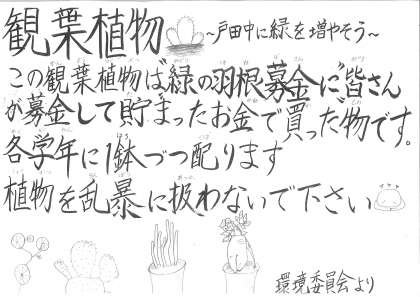 観葉植物 ～戸田中に緑を増やそう～
この観葉植物は緑の羽根募金に皆さん
が募金して貯まったお金で買った物です。
各学年に1鉢づつ配ります
植物を乱暴に扱わないで下さい
環境委員会より